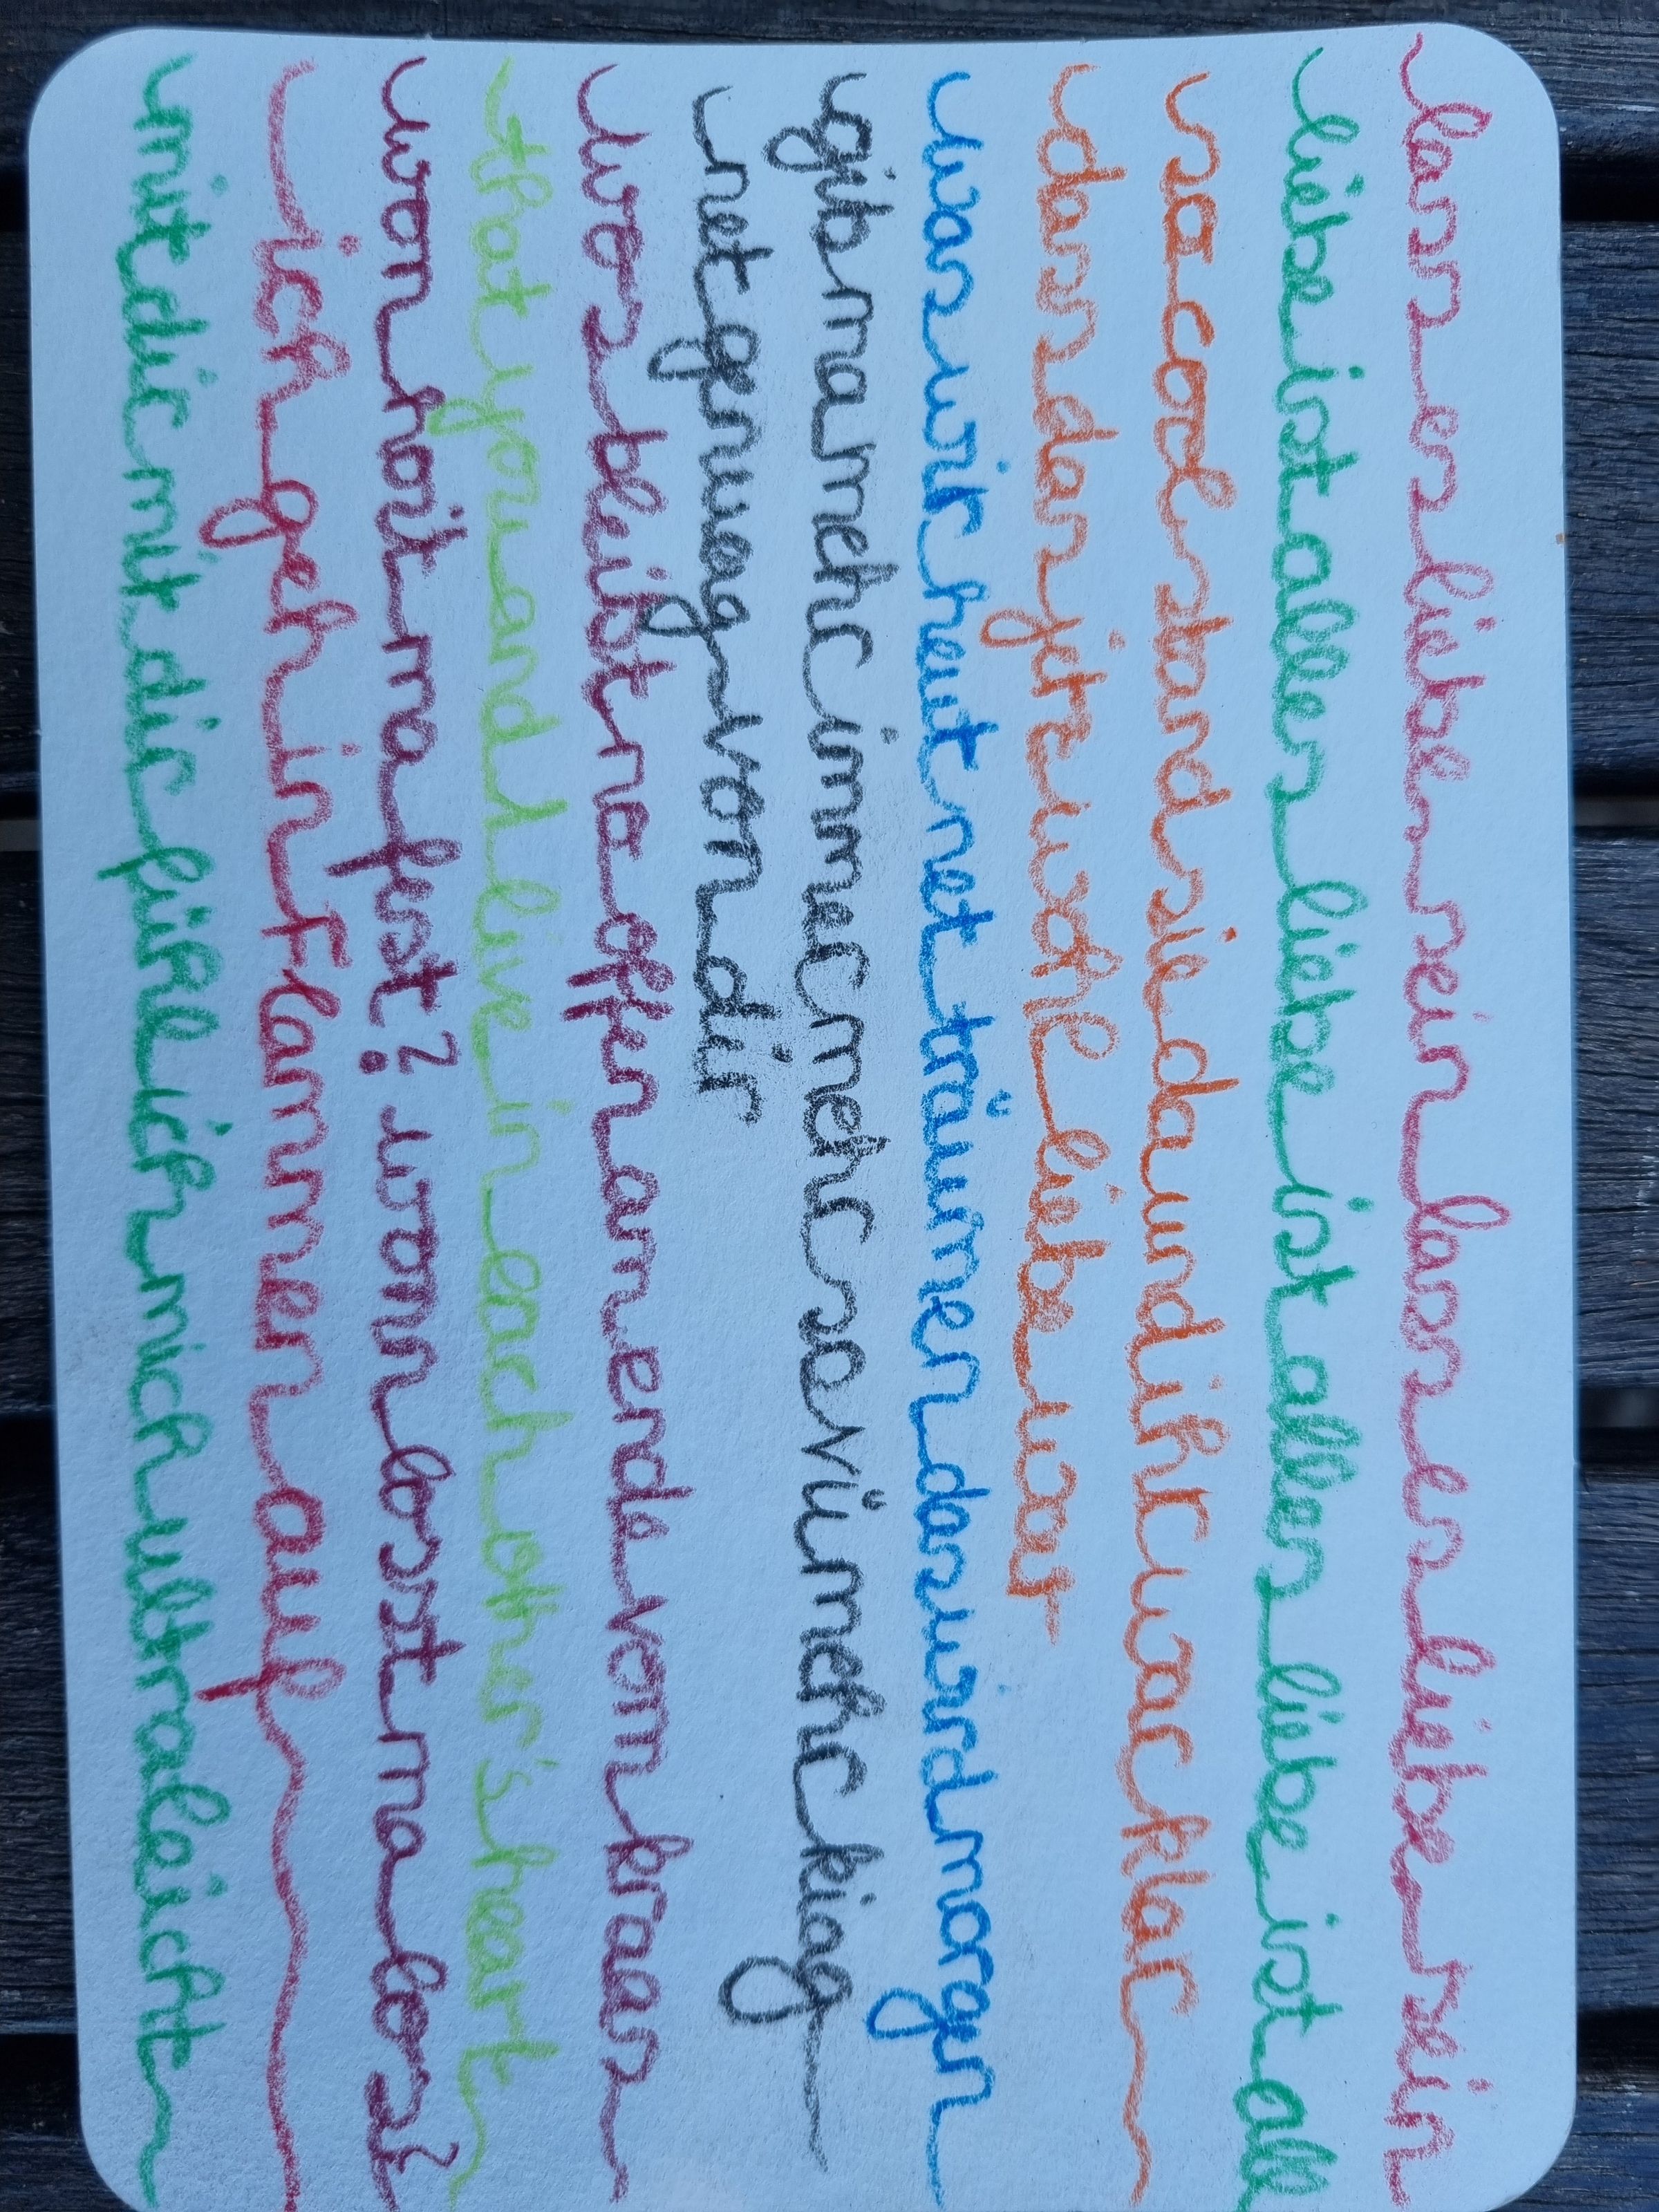 lass es liebe sein lass es liebe sein
liebe ist alles liebe ist alles liebe ist all
so cool stand sie da und ihr war klar
dass das jetz wohl liebe war
was wir heut net träumen das wird morgen
gib ma mehr immer mehr so vü mehr kiag
net genuag von dir
wos bleibt na offen am ende vom kraas
that you and I live in each other's heart
won hoit ma fest? wonn losst ma los?
ich geh in Flammen auf
mit dir mit dir fühl ich mich ultraleicht